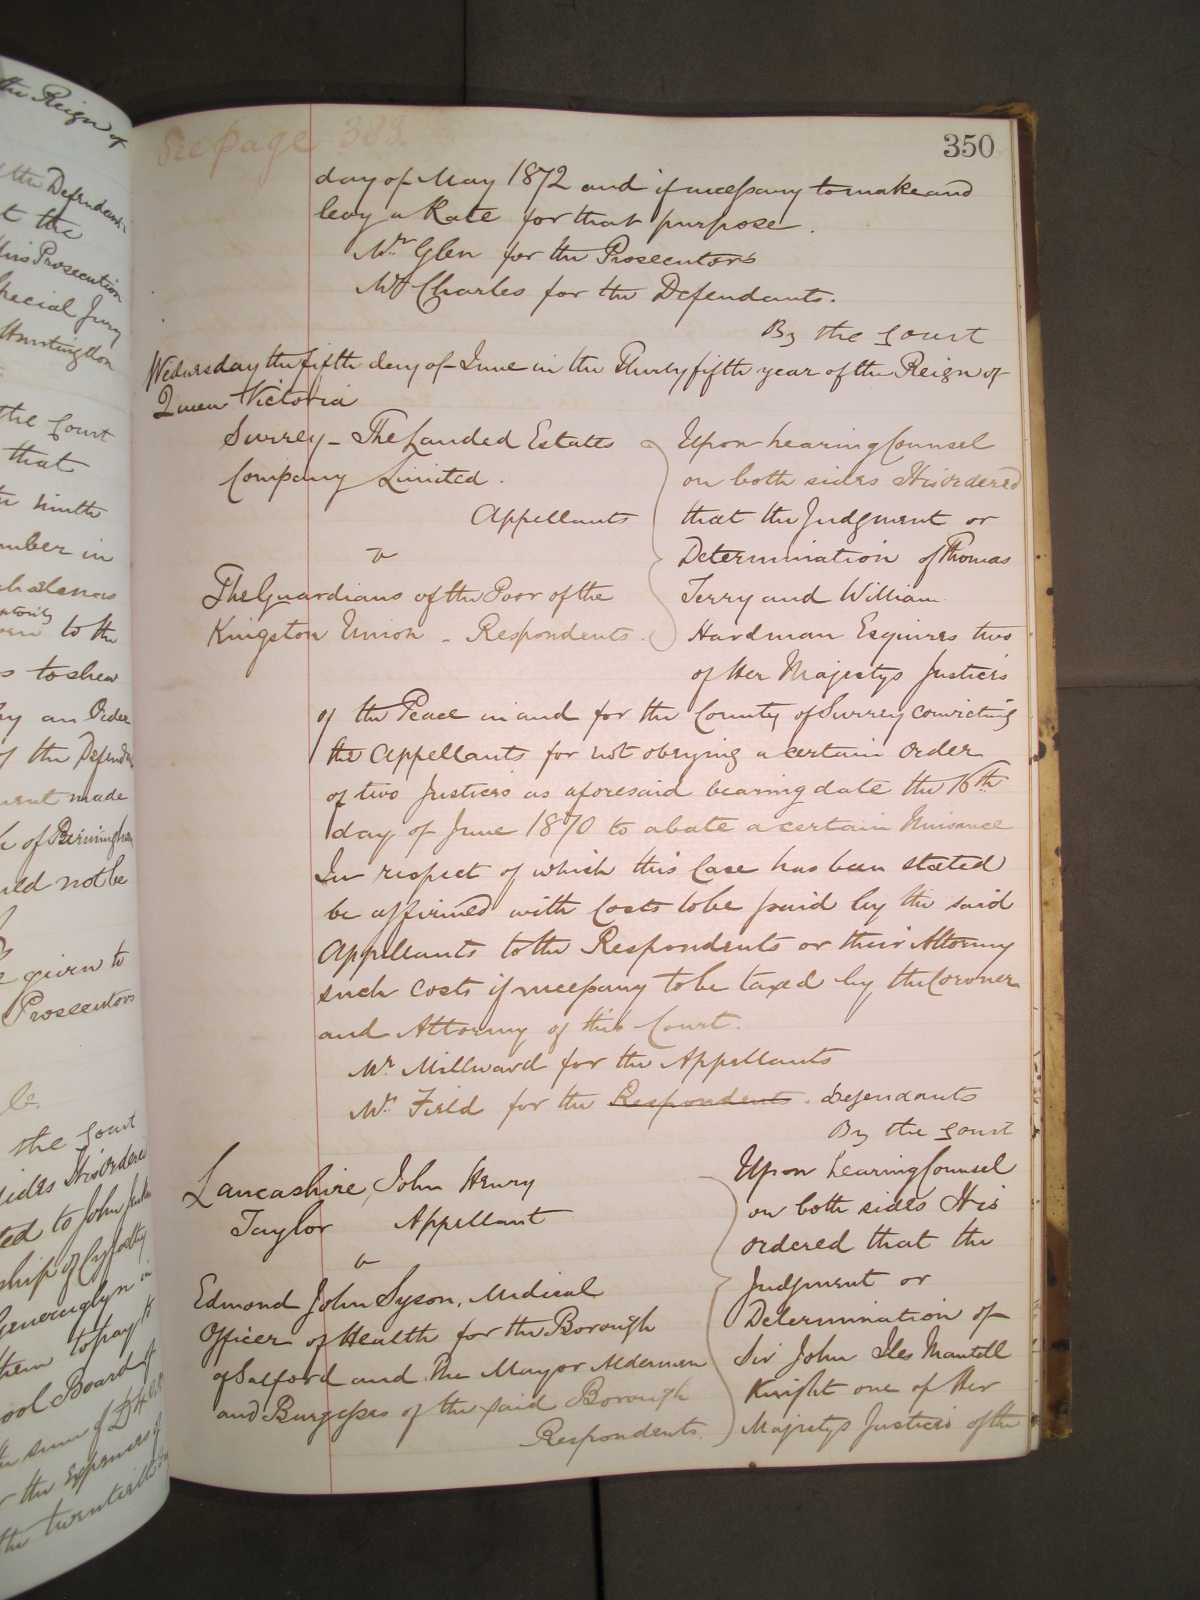 the Reign of
the Defendants
t the
this Prosecution
Special Jury
Huntingdon
the Court
that
ninth
mber in
to the
s to shew
by an Order
of the Defend
ment made
of Birmingham
uld not be
given to
Prosecutors
the Court
sides It is ordere
ted to John
ship of
them to pay
ool Board of
sum of
r the expenses of
the twentieth
See page 383.
350
day of May 1872 and if necessary to make and
levy a Rate for that purpose.
Mr Glen for the Prosecutors
Mr Charles for the Defendants.
By the Court
Wednesday the fifth day of June in the Thirty fifth year of the Reign of
Queen Victoria
Surrey - The Landed Estates
Company Limited.
Appellants
v
The Guardians of the Poor of the
Kingston Union - Respondents.
Upon hearing Counsel
on both sides It is ordered
that the Judgment or
Determination of Thomas
Terry and William
Hardman Esquires two
of Her Majestys Justices
of the Peace in and for the County of Surrey convicting
the Appellants for not obeying a certain order
of two Justices as aforesaid bearing date the 16th
day of June 1870 to abate a certain Nuisance
In respect of which this Case has been stated
be affirmed with Costs to be paid by the said
Appellants to the Respondents or their Attorney
such costs if necessary to be taxed by the Coroner
and Attorney of this Court.
Mr Millward for the Appellants
Mr Field for the Respondents. Defendants
By the Court
Lancashire, John Henry
Taylor Appellant
v
Edmond John Syson, Medical
Officer of Health for the Borough
of Salford and The Mayor Aldermen
and Burgesses of the said Borough
Respondents.
Upon hearing Counsel
on both sides It is
ordered that the
Judgment or
Determination of
Sir John Iles Mantell
Knight one of Her
Majestys Justices of the